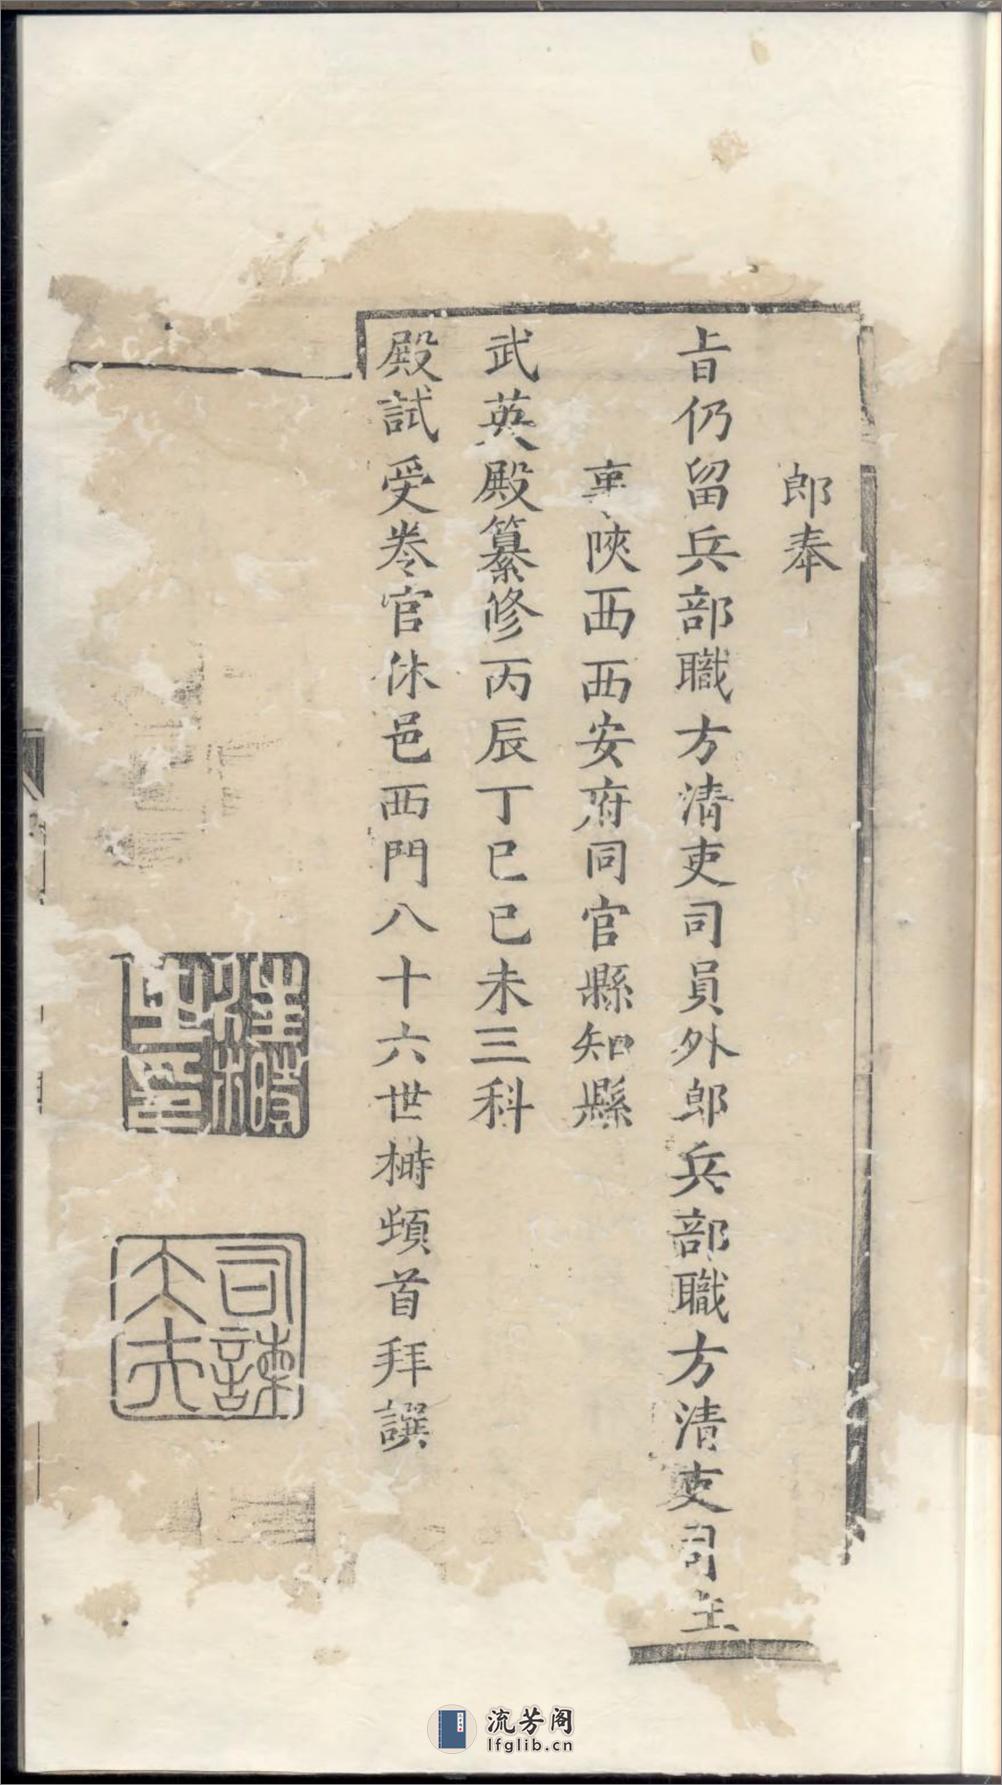 郎奉
旨仍留兵部職方清吏司員外郎兵部職方清吏司主
事陝西西安府同官縣知縣
武英殿纂修丙辰丁巳己未三科
殿試受卷官休邑西門八十六世榯頓首拜譔
司諫
大夫
流芳阁
lfglib.cn